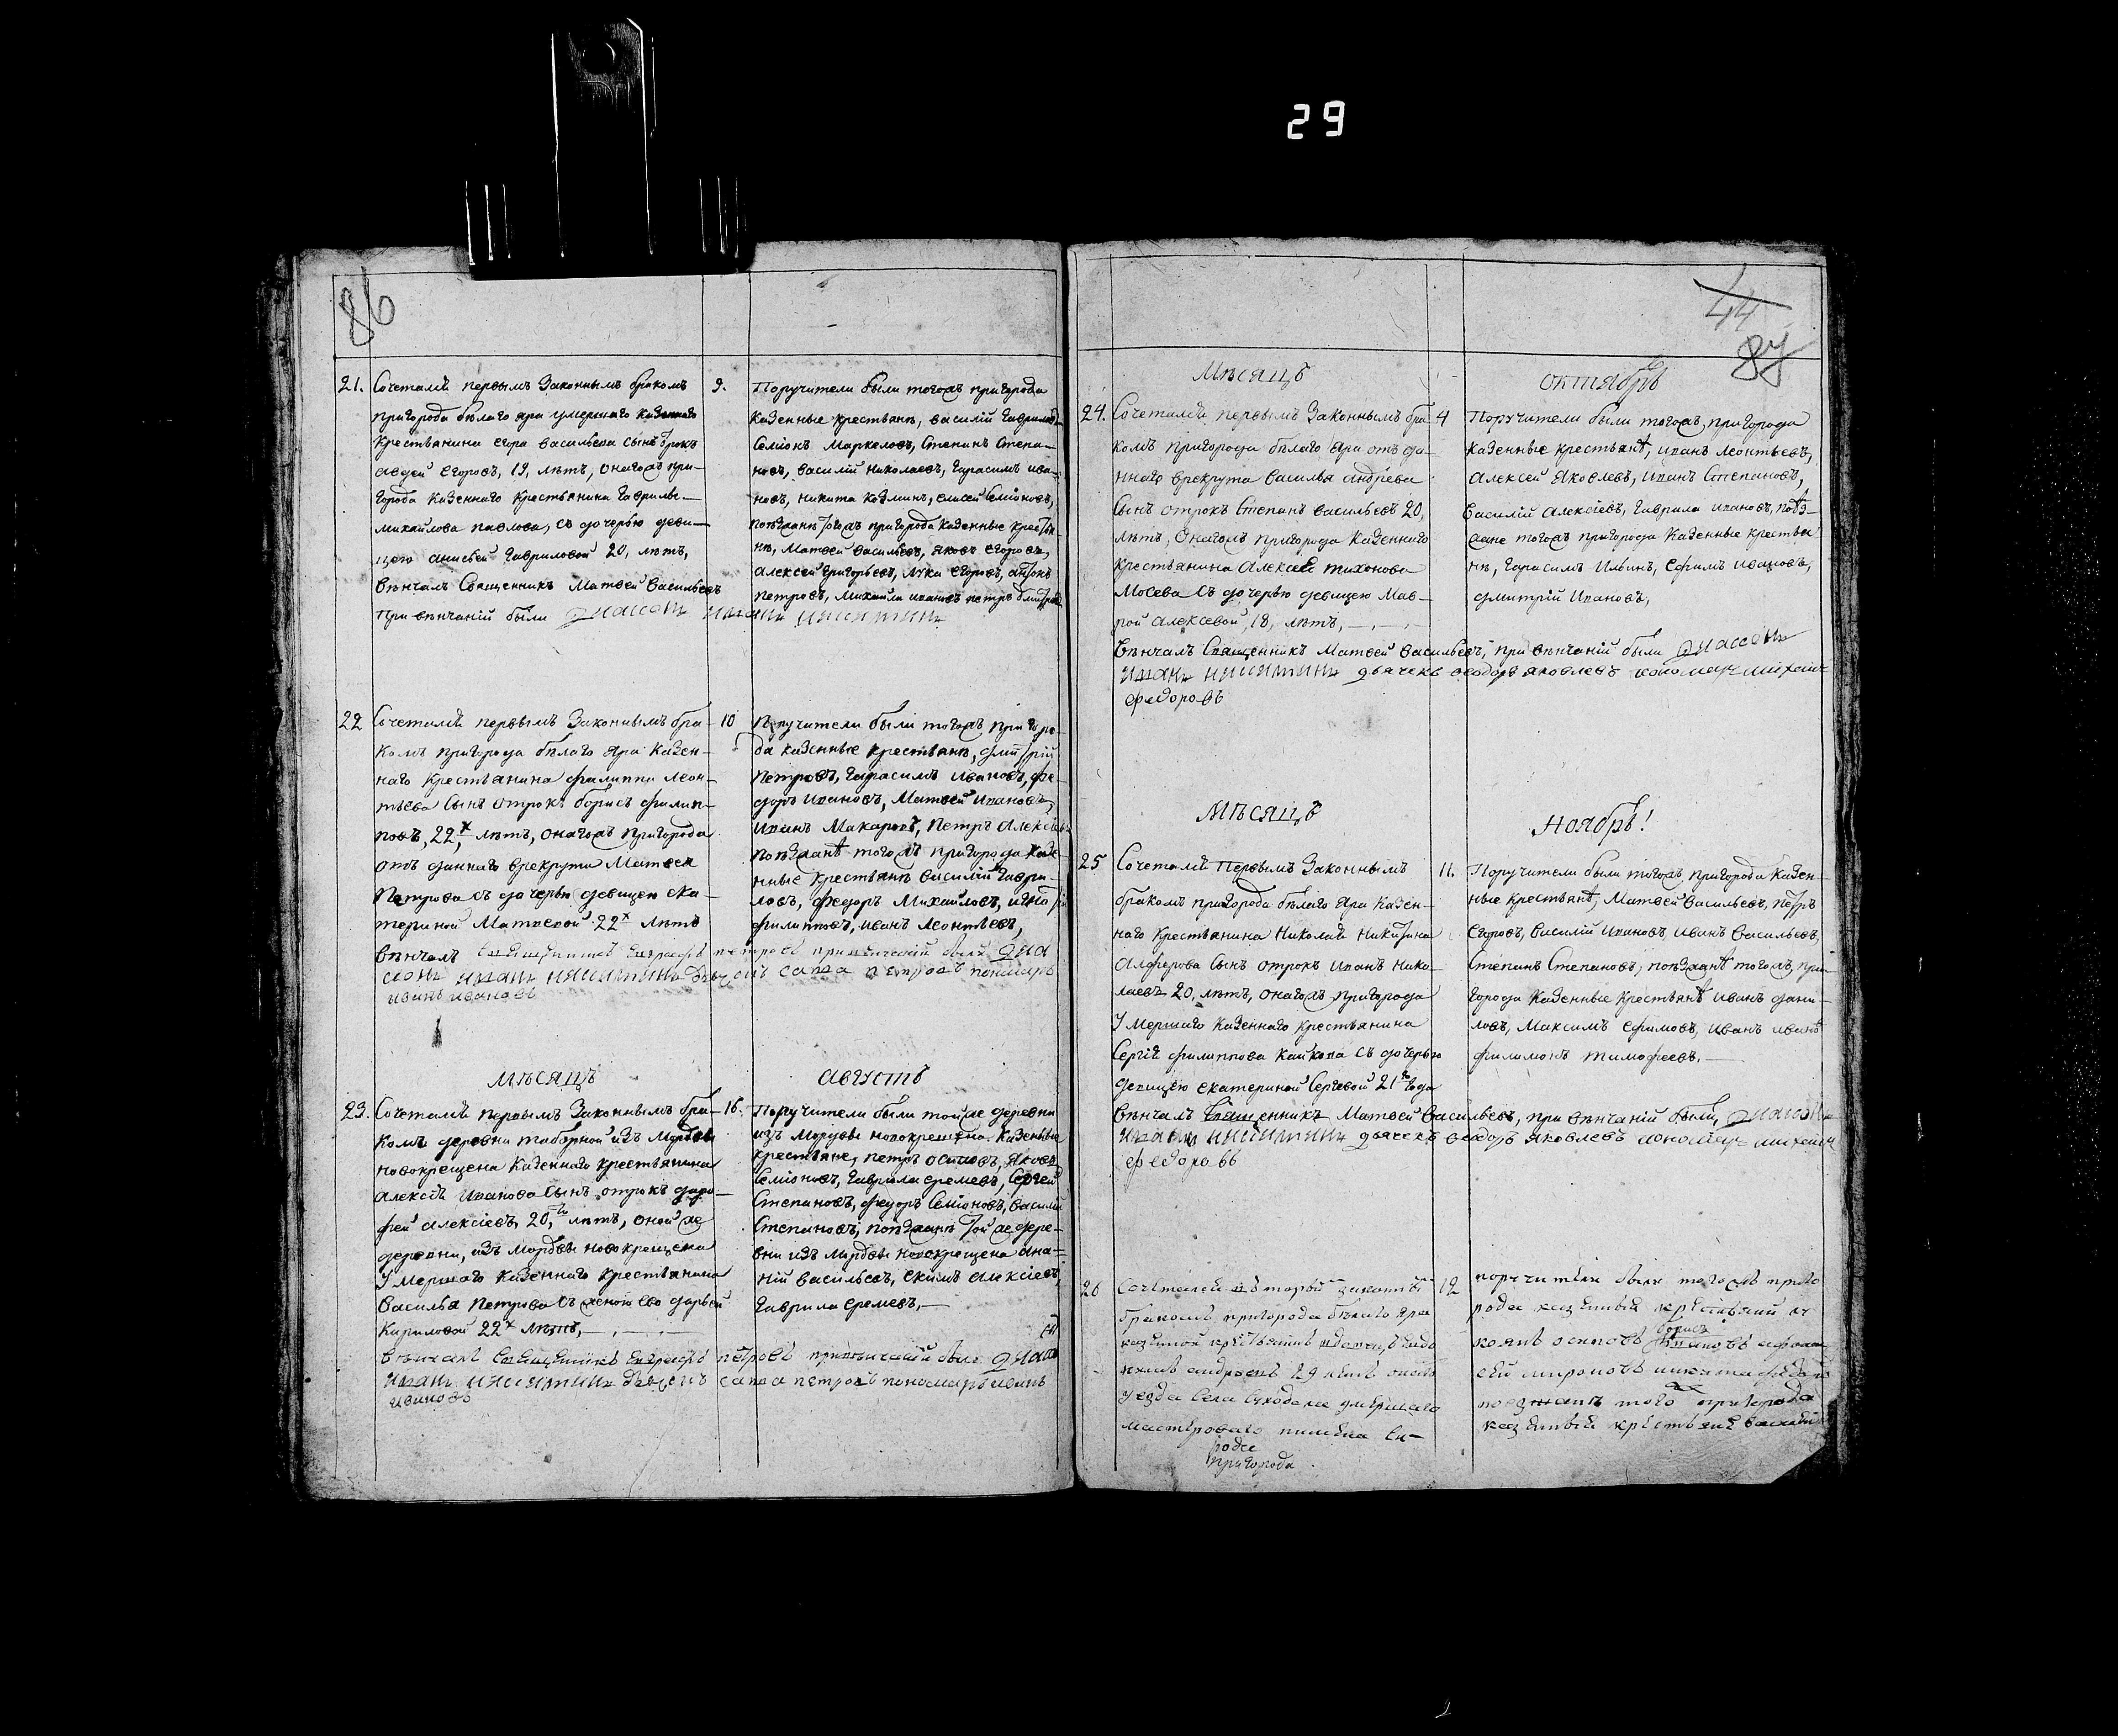 29
86
21. Сочетался первымъ Законнымъ бракомъ
пригорода белаго яра умершаго казеннаго
крестьянина егора васильева сынъ отрокъ
авдей егоровъ, 19, летъ, оногожъ при-
города казеннаго крестьянина гаврилы
михайлова павлова, съ дочерью деви-
цею анисьей гавриловой 20, летъ,
Венчалъ Священникъ Матвей Васильевъ
При венчаніи были діаконъ иванъ никитинъ
9. Поручители были тогожъ пригорода
казенные крестьяне, василій гавриловъ
Семіонъ Маркеловъ, Степанъ Степа-
новъ, василій николаевъ, гарасимъ ива-
новъ, никита козминъ, елисей Семіоновъ,
поезжане тогожъ пригорода казенные крестья-
не, Матвей васильевъ, яковъ егоровъ,
алексей григорьевъ, лука егоровъ, антонъ
петровъ, михайла ивановъ петръ
22 Сочетался первымъ Законнымъ бра-
комъ пригорода белаго яра казен-
наго крестьянина филиппа леон-
тьева сынъ отрокъ борисъ филип-
повъ, 22х летъ, оногожъ пригорода
отъ даннаго врекруты Матвея
Петрова съ дочерью девицею ека-
териной Матвеевой 22х летъ
венчалъ священникъ петровъ при венчаніи были діа
конъ иванъ никитинъ дьячекъ сава петровъ пономарь
иванъ ивановъ
10 Поручители были тогожъ пригоро-
да казенные крестьяне, дмитрій
Петровъ, гарасимъ ивановъ, фе-
доръ ивановъ, Матвей ивановъ,
иванъ Макаровъ, петръ алексеевъ
поезжане тогожъ пригорода казе-
нные крестьяне василій гаври-
ловъ, федоръ Михайловъ, игнатій
филипповъ, иванъ леонтьевъ,
месяцъ августъ
23. Сочетался первымъ Законнымъ бра-
комъ деревни таборной изъ мордвы
новокрещена казеннаго крестьянина
алексея иванова сынъ отрокъ доро-
фей алексіевъ 20,ти летъ, оной же
деревни, изъ мордвы новокрещена
умершаго казеннаго крестьянина
василья петрова съ женою ево дарьей
кириловой 22х летъ,
венчалъ священникъ петровъ при венчаніи были діако
иванъ никитинъ дьячекъ сава петровъ пономарь иванъ
ивановъ
16. Поручители были той же деревни
изъ мордвы новокрещена казенные
крестьяне, петръ осиповъ, яковъ
Семіоновъ, гаврила еремеевъ, Сергей
Степановъ, федоръ Семіоновъ, василій
Степановъ, поезжане той же дере-
вни изъ мордвы новокрещена ана-
ній васильевъ, екимъ алексіевъ,
гаврила еремеевъ,
44
87
Месяцъ октябрь
24. Сочетался первымъ Законнымъ бра-
комъ пригорода белаго яра отъ да-
ннаго врекрута василья андреева
сынъ отрокъ Степанъ васильевъ 20,
летъ, оногожъ пригорода казеннаго
крестьянина алексея тихонова
Мосева съ дочерью девицею Мав-
рой алексевой, 18, летъ,
венчалъ Священникъ Матвей васильевъ, при венчаніи были діаконъ
иванъ никитинъ дьячекъ феодоръ яковлевъ пономарь михаилъ
федоровъ
4 Поручители были тогожъ, пригорода
казенные крестьяне, иванъ леонтьевъ,
алексей яковлевъ, иванъ Степановъ,
василій алексіевъ, гаврила ивановъ, поез-
жане тогожъ пригорода казенные крестья
не, гарасимъ ильинъ, ефимъ ивановъ,
дмитрій ивановъ,
Месяцъ Ноябрь!
25 Сочетался Первымъ Законнымъ
бракомъ пригорода белаго яра казен-
наго крестьянина николая никитина
алферова сынъ отрокъ иванъ нико-
лаевъ 20, летъ, оногожъ пригорода
умершаго казеннаго крестьянина
Сергія филиппова съ дочерью
девицею екатериной Сергевой 21го года
венчалъ священникъ Матвей васильевъ, при венчаніи были, діаконъ
иванъ никитинъ дьячекъ феодоръ яковлевъ пономарь михаилъ
федоровъ
11. Поручители были тогожъ пригорода казен-
ные крестьяне, Матвей васильевъ, петръ
егоровъ, василій ивановъ, иванъ васильевъ,
Степанъ Степановъ, поезжане тогожъ, при-
города казенные крестьяне иванъ дани-
ловъ, Максимъ ефимовъ, иванъ ивановъ
филимонъ тимофеевъ.
26 Сочетался вторый законны
бракомъ пригорода белаго яра
казенной крестьянинъ вдовецъ
29 летъ
уезда села умершаго
пригорода
12 поручители были тогожъ приго
рода казенныя крестьяни
осиповъ борисъ ивановъ
мироновъ никита
поезжане того же пригорода
казенныя крестьяне василій